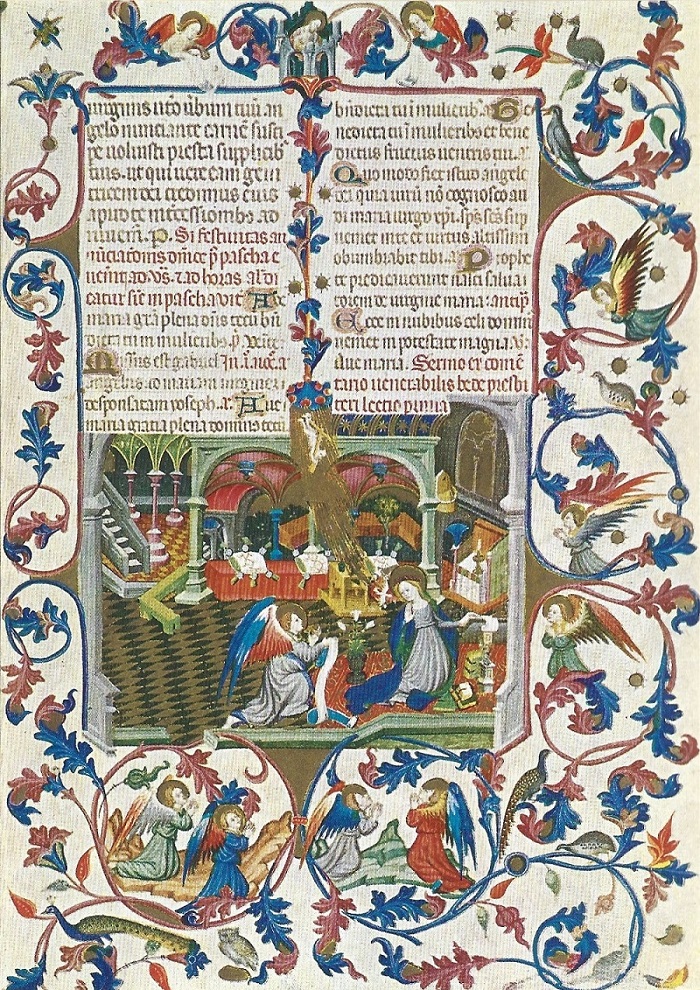 uirginis utero uerbum tuum an
gelo nunciante carnem susci
pe uoluisti presta supplicib
tuis. ut qui uere eam geni
tricem dei credimus eius
apud te intercessionibus ad
iuuem. p. Si festiuitas an
nuciationis domine p pascha e
uenit ad vs. 7 ad horas al di
catur sine in pascha
maria gra plena dns tecu bn
dicta tu in mulierib
Missus est gabriel
angelus ad mariam uirginem
desponsatam yoseph. Aue
maria gratia plena dominus tecu
bndicta tu i mulierib. Be
nedicta tu i mulieribus et bene
dictus fructus uentris tui.
Quo modo fiet istud angele
dei quia uiru no cognosco au
di maria uirgo xpi. sps scs sup
ueniet in te et uirtus altissimi
obumbrabit tibi. Prophe
te predicauerunt nasci salua
torem de uirgine maria
Ecce in nubibus celi domin
ueniet in potestate magna
Aue maria. Sermo ex come
tario uenerabilis bede presbi
teri lectio prima